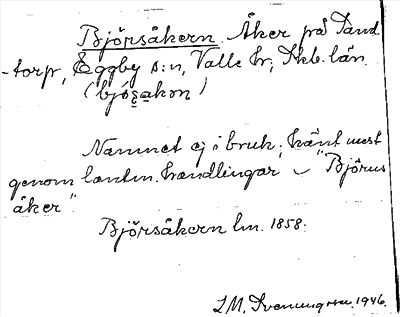 Björsåkern. Åker på Sand
-torp, Eggby s:n, Valle hr; Skb. län.
(bjö̱ṣa̱kɷn)
Namnet ej i bruk; känt mest
genom lantm. handlingar – "Björus
åker".
Björsåkern lm. 1858.
I.M. Svenungsson. 1946.